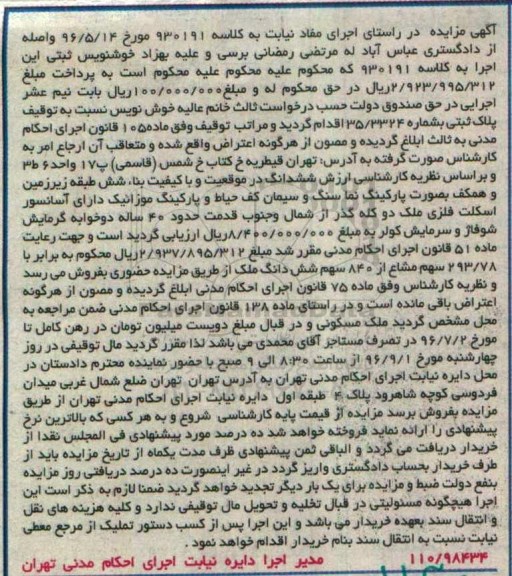 آگهی مزایده در راستای اجرای مفاد نیابت به کلاسه ۹۳۰۱۹۱ مورخ ۹۶/۵/۱۴ واصله
از دادگستری عباس آباد له مرتضی رمضانی برسی و علیه بهزاد خوشنویس ثبتی این
اجرا به کلاسه ۹۳۰۱۹۱ که محکوم علیه محکوم علیه محکوم است به پرداخت مبلغ
۲/۹۲۳/۹۹۵/۳۱۲ریال در حق محکوم له و مبلغ۱۰۰/۰۰۰/۰۰۰ریال بابت نیم عشر
اجرایی در حق صندوق دولت حسب درخواست ثالث خانم عالیه خوش نویس نسبت به توقیف
پلاک ثبتی بشماره ۳۵/۳۳۲۴اقدام گردید و مراتب توقیف وفق ماده۱۰۵ قانون اجرای احکام
مدنی به ثالث ابلاغ گردیده و مصون از هرگونه اعتراض واقع شده و متعاقب آن ارجاع امر به
کارشناس صورت گرفته به آدرس: تهران قیطریه خ کتاب خ شمس (قاسمی) پ۱۷ واحد۶ ط۳
و براساس نظریه کارشناسی ارزش ششدانگ در موقعیت و با کیفیت بنا، شش طبقه زیرزمین
و همکف بصورت پارکینگ نما سنگ و سیمان کف حیاط و پارکینگ موزائیک دارای آسانسور
اسکلت فلزی ملک دو کله گذر از شمال وجنوب قدمت حدود ۴۰ ساله دوخوابه گرمایش
شوفاژ و سرمایش کولر به مبلغ ۸/۴۰۰/۰۰۰/۰۰۰ریال ارزیابی گردید است و جهت رعایت
ماده ۵۱ قانون اجرای احکام مدنی مقرر شد مبلغ ۲/۹۳۷/۸۹۵/۳۱۲ریال محکوم به برابر با
۲۹۳/۷۸ سهم مشاع از ۸۴۰ سهم شش دانگ ملک از طریق مزایده حضوری بفروش می رسد
و نظریه کارشناس وفق ماده ۷۵ قانون اجرای احکام مدنی ابلاغ گردیده و مصون از هرگونه
اعتراض باقی مانده است و در راستای ماده ۱۳۸ قانون اجرای احکام مدنی ضمن مراجعه به
محل مشخص گردید ملک مسکونی و در قبال مبلغ دویست میلیون تومان در رهن کامل تا
مورخ ۹۶/۷/۲ در تصرف مستاجر آقای محمدی می باشد لذا مقرر گردید مال توقیفی در روز
چهارشنبه مورخ ۹۶/۹/۱ از ساعت ۸:۳۰ الی ۹ صبح با حضور نماینده محترم دادستان در
محل دایره نیابت اجرای احکام مدنی تهران به آدرس تهران تهران ضلع شمال غربی میدان
فردوسی کوچه شاهرود پلاک ۴ طبقه اول دایره نیابت اجرای احکام مدنی تهران از طریق
مزایده بفروش برسد مزایده از قیمت پایه کارشناسی شروع و به هر کسی که بالاترین نرخ
پیشنهادی را ارائه نماید فروخته خواهد شد ده درصد مورد پیشنهادی فی المجلس نقدا از
خریدار دریافت می گردد و الباقی ثمن پیشنهادی ظرف مدت یکماه از تاریخ مزایده باید از
طرف خریدار بحساب دادگستری واریز گردد در غیر اینصورت ده درصد دریافتی روز مزایده
بنفع دولت ضبط و مزایده برای یک بار دیگر تجدید خواهد گردید ضمنا لازم به ذکر است این
اجرا هیچگونه مسئولیتی در قبال تخلیه و تحویل مال توقیفی ندارد و کلیه هزینه های نقل
و انتقال سند بعهده خریدار می باشد و این اجرا پس از کسب دستور تملیک از مرجع معطی
نیابت نسبت به انتقال سند بنام خریدار اقدام خواهد نمود .
۱۱۰/۹۸۴۳۴ مدیر اجرا دایره نیابت اجرای احکام مدنی تهران